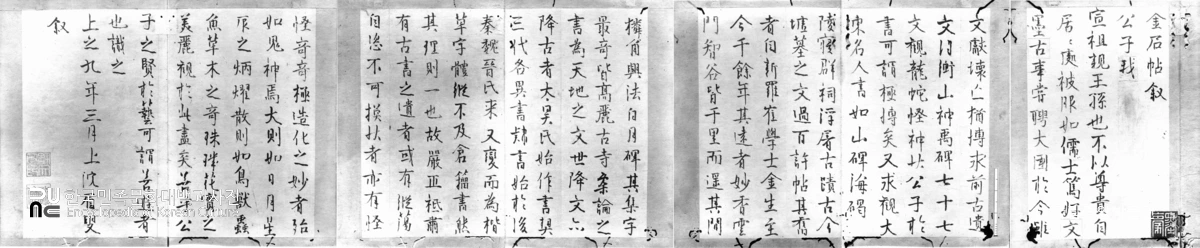 金石帖叙
公子我
宣祖親王孫也不以尊貴自
居〻處被服如儒士篤好文
墨古事嘗聘大國於今雖
文獻壞亡猶博求前古遺
文得衡山神禹碑七十七
文觀龍蛇怪神於公子於
書可謂極博矣又求觀大
東名人書如山碑海碣
陵寢群祠浮屠古蹟古今
墟墓之文過百許帖其舊
者自新羅崔學士金生至
今千餘年其遠者妙香雲
門智谷皆千里而還其間
麟角興法白月碑其集字
最奇皆高麗古寺 論之
書為天地之文世降文亦
降古者大昊氏始作書契
三代各異書隸書始於後
秦魏晉氏来又變而為楷
草字體縱不及倉籀書然
其理則一也故嚴正祗肅
有古書之遺者或有縱蕩
自恣不可模狀者亦有怪
怪奇奇極造化之妙者殆
如鬼神焉大則如日月星
辰之炳耀散則如鳥獸蟲
魚草木之奇珠璣之
美麗視於此盡矣公
子之賢於藝可謂善者
也識之
上之九年三月上沈眉叟
叙
한국민족문화대백과사전
Encyclopedia of Korean Culture